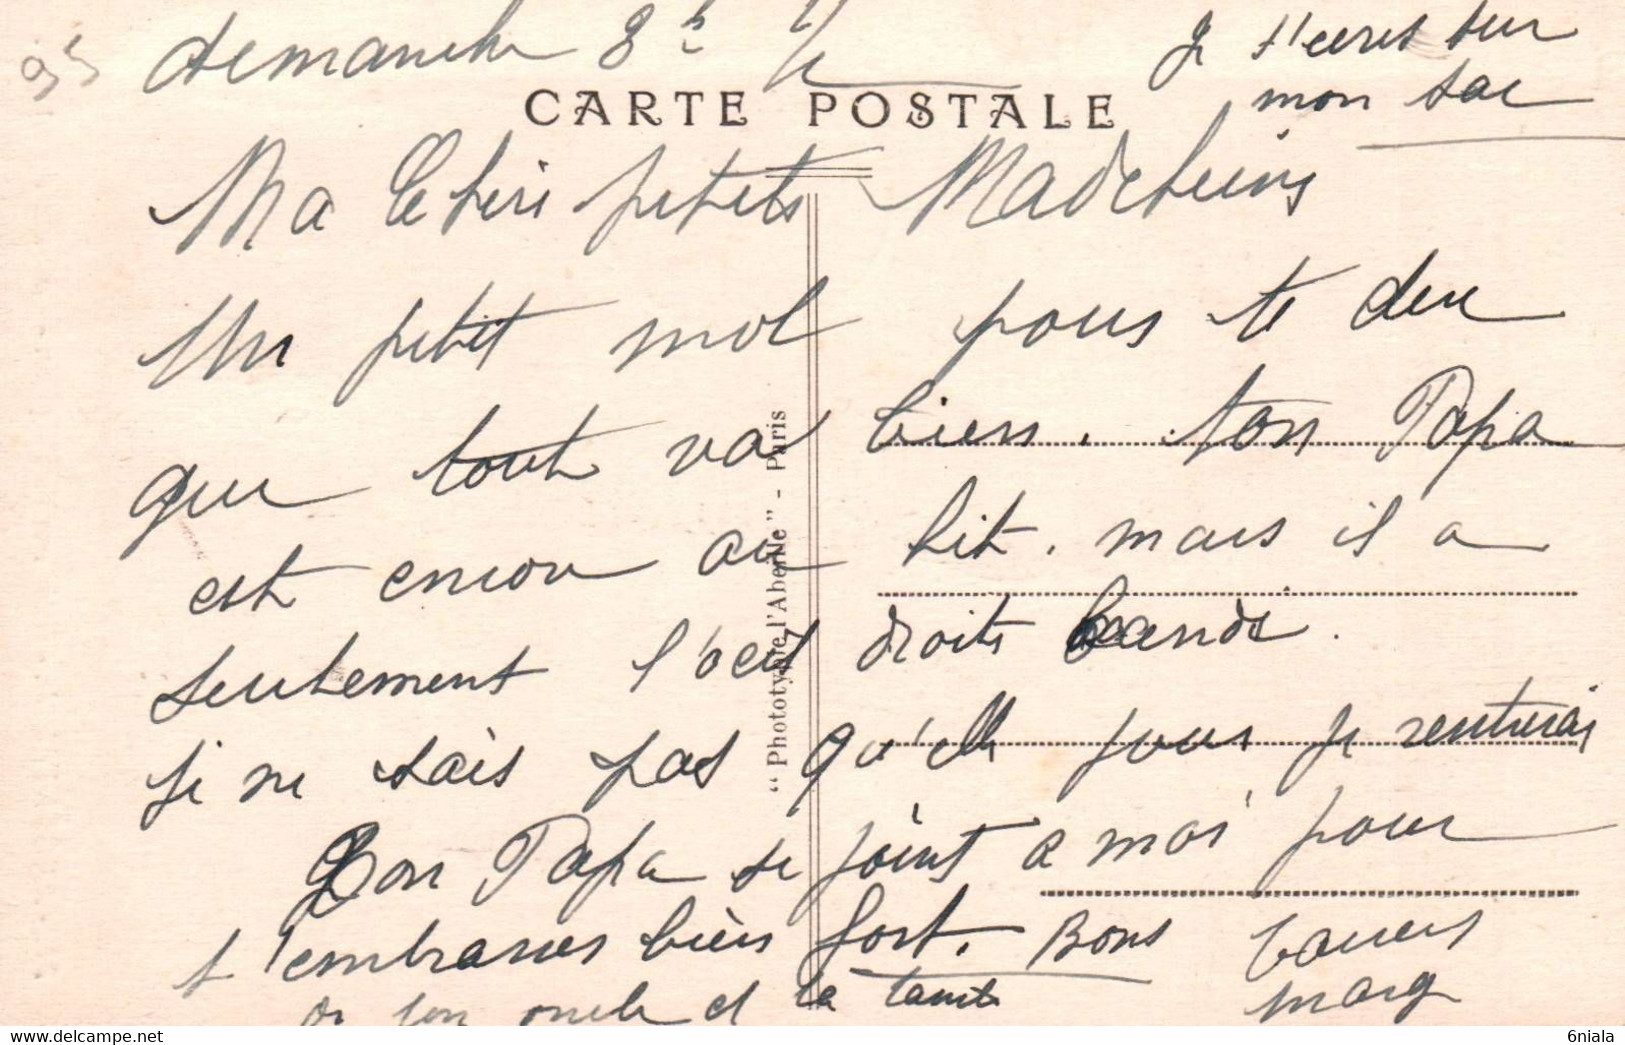 95
demanche 8 h 1/2
Je t'ecris sur
mon sac
CARTE POSTALE
Ma Cheri petits Madeleine
Un petit mot pour te dire
que tout va bien. ton Papa
est encor au lit. mais il a
seulement l'oeil droits bande.
je ne sais pas qu'elle jour je rentrerai
Bon Papa se joint a moi pour
t'embrasser bièn fort. Bons baisers
de ton oncle et ta tante Marg
"Phototypie l'Abeille" - Paris
6niala